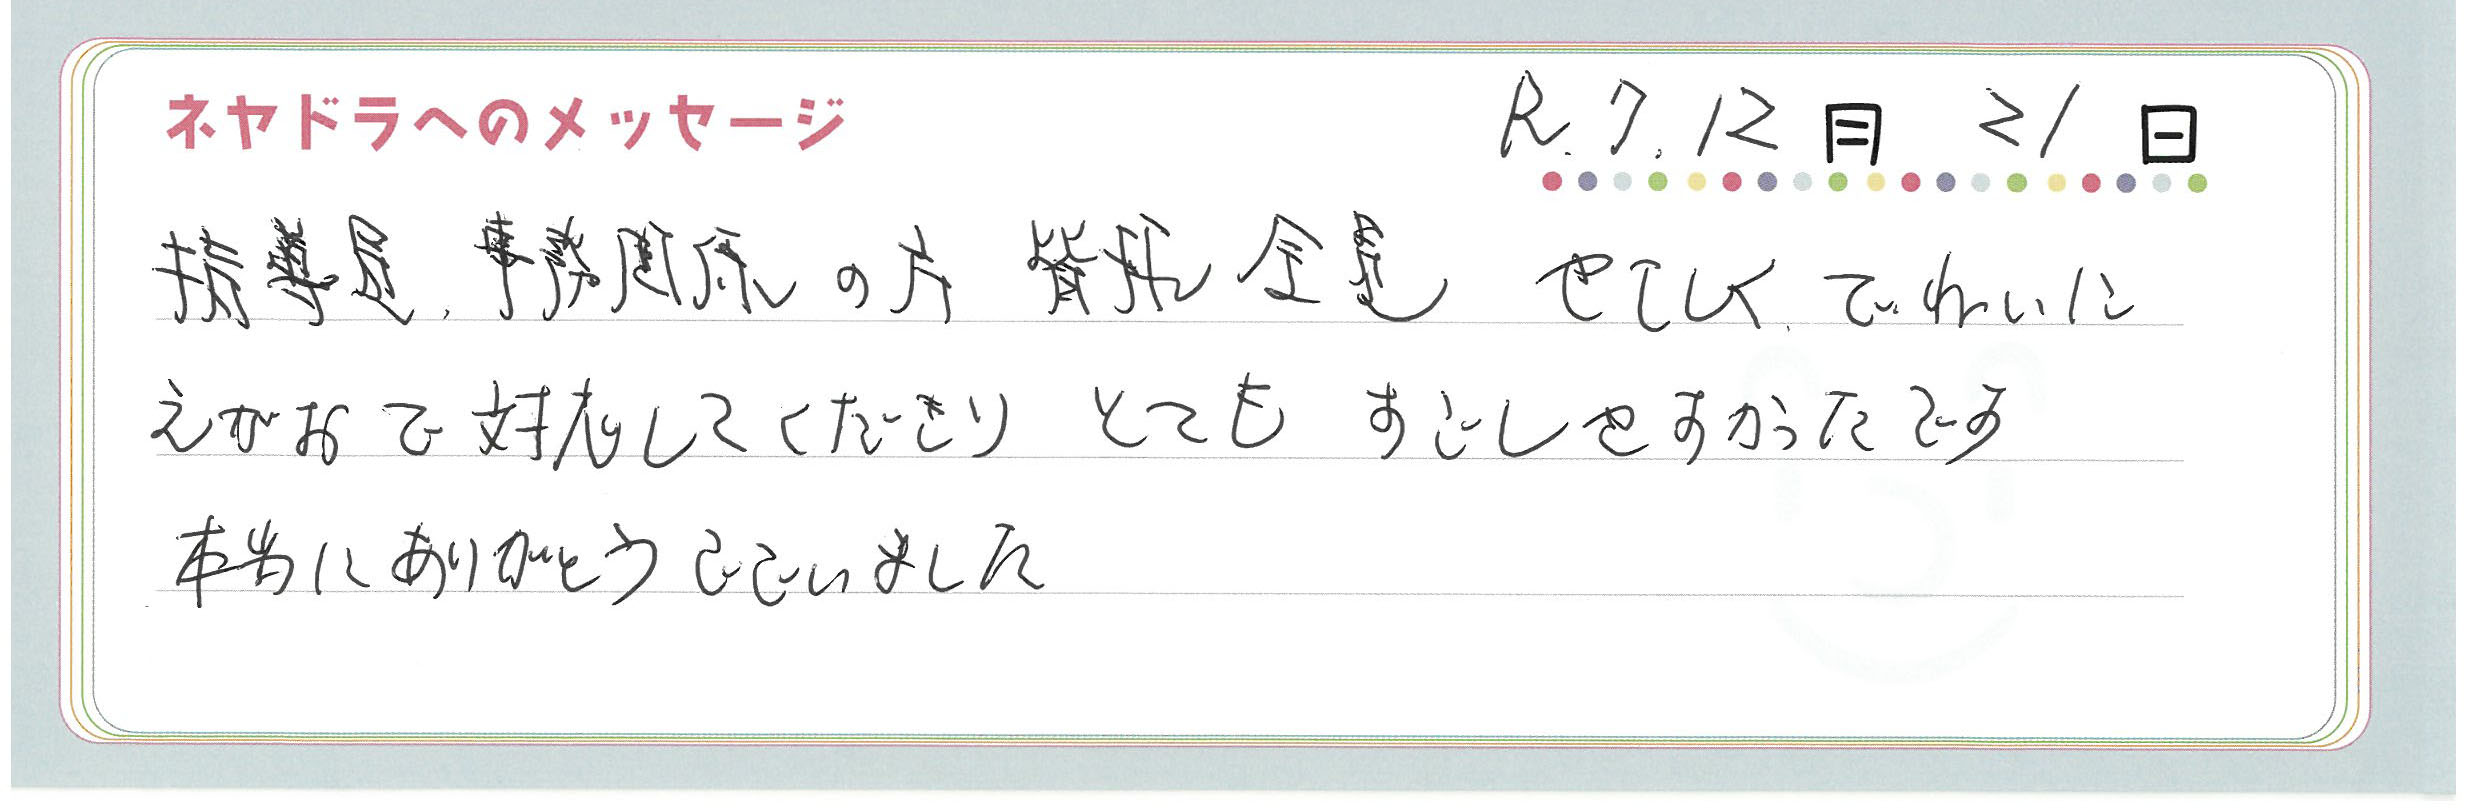 ネヤドラへのメッセージ
R.7.12月 21日
指導員、事務関係の方 皆様 全員 やさしく、ていねいに
えがおで対応してくださり とても すごしやすかったです
本当にありがとうございました